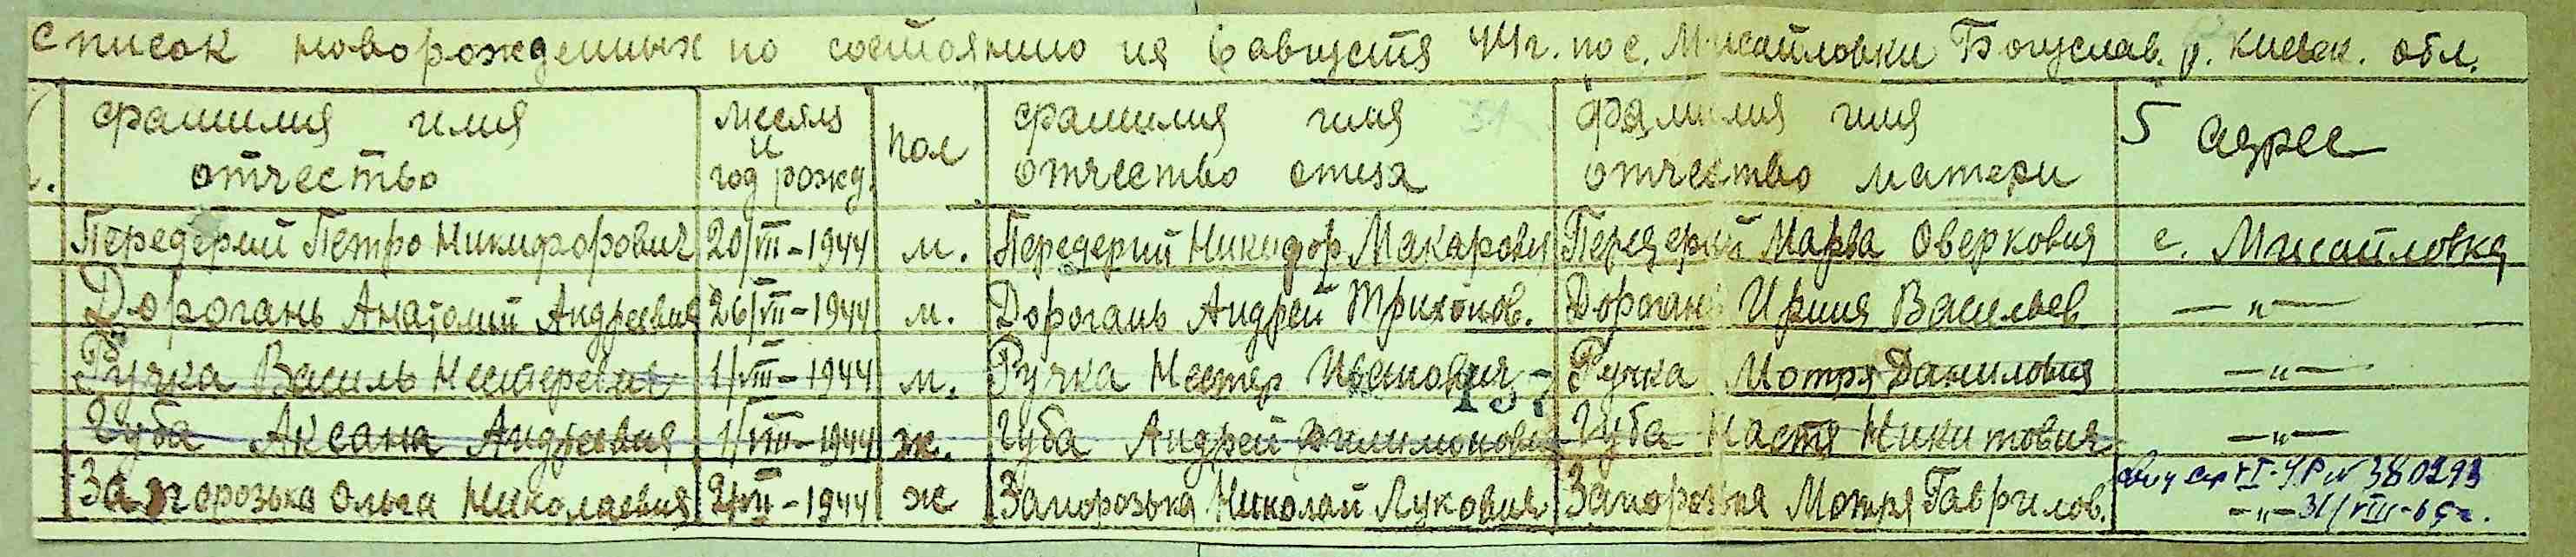 список новорожденных по состоянию на 6 августа 44г. по с. Мисайловки Богуслав. р. Киевск. обл.
фамилия имя отчество месяц и год рожд. пол фамилия имя отчество отца фамилия имя отчество матери 5 адрес
Передерий Петро Никифорович 20/VII-1944 м. Передерий Никифор Макарович Передерий Марва Оверковня с. Мисайловка
Дорогань Анатолий Андреевич 26/VII-1944 м. Дорогань Андрей Трихонов. Дорогань Ирина Васильев. —„—
Ручка Василь Нестеревич 1/VIII-1944 м. Ручка Нестер Иванович Ручка Мотря Даниловня —„—
Губа Аксана Андреевня 1/VIII-1944 ж. Губа Андрей Филимонович Губа Настя Никитовня —„—
Запорозька Ольга Николаевня 2/VII-1944 ж Запорозька Николай Лукович Запорозька Мотря Гаврилов. VI-УР № 380293
—„— 31/VIII-65г.